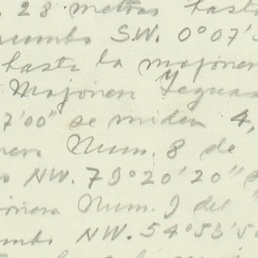 28 metros hasta
rumbo S.W. 0°07'
hasta la mojonera
Mojonera Leguas
7'00" se miden 4,
nera Num. 8 de
o NW. 79°20'20"
jonera Num. 9 del
umbo NW. 54°53'5